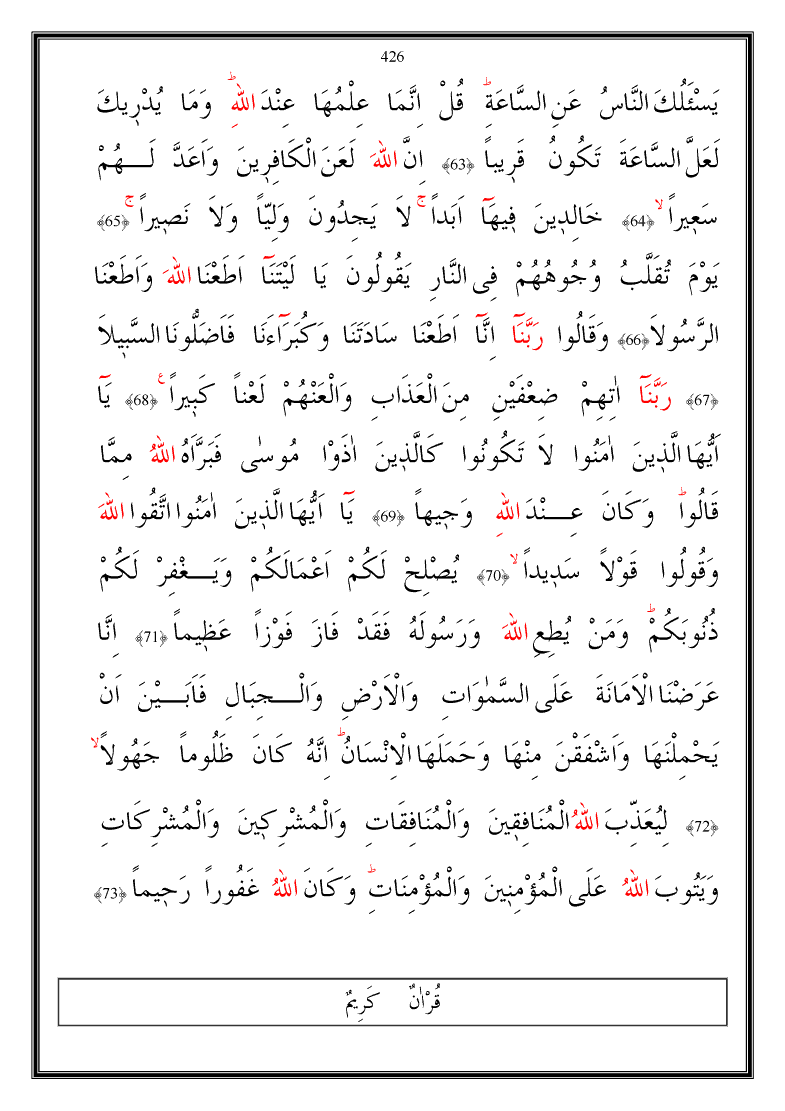 426
يَسْـَٔلُكَ النَّاسُ عَنِ السَّاعَةِۜ قُلْ اِنَّمَا عِلْمُهَا عِنْدَ اللّٰهِۜ وَمَا يُدْر۪يكَ
لَعَلَّ السَّاعَةَ تَكُونُ قَر۪يباً ﴿63﴾ اِنَّ اللّٰهَ لَعَنَ الْكَافِر۪ينَ وَاَعَدَّ لَـــهُمْ
سَع۪يراًۙ ﴿64﴾ خَالِد۪ينَ ف۪يهَٓا اَبَداًۚ لاَ يَجِدُونَ وَلِيّاً وَلاَ نَص۪يراًۚ ﴿65﴾
يَوْمَ تُقَلَّبُ وُجُوهُهُمْ فِى النَّارِ يَقُولُونَ يَا لَيْتَنَٓا اَطَعْنَا اللّٰهَ وَاَطَعْنَا
الرَّسُولاَ ﴿66﴾ وَقَالُوا رَبَّنَٓا اِنَّٓا اَطَعْنَا سَادَتَنَا وَكُبَرَٓاءَنَا فَاَضَلُّونَا السَّب۪يلاَ
﴿67﴾ رَبَّنَٓا اٰتِهِمْ ضِعْفَيْنِ مِنَ الْعَذَابِ وَالْعَنْهُمْ لَعْناً كَب۪يراً۟ ﴿68﴾ يَٓا
اَيُّهَا الَّذ۪ينَ اٰمَنُوا لاَ تَكُونُوا كَالَّذ۪ينَ اٰذَوْا مُوسٰى فَبَرَّاَهُ اللّٰهُ مِمَّا
قَالُواۜ وَكَانَ عِـــنْدَ اللّٰهِ وَج۪يهاً ﴿69﴾ يَٓا اَيُّهَا الَّذ۪ينَ اٰمَنُوا اتَّقُوا اللّٰهَ
وَقُولُوا قَوْلاً سَد۪يداًۙ ﴿70﴾ يُصْلِحْ لَكُمْ اَعْمَالَكُمْ وَيَـــغْفِرْ لَكُمْ
ذُنُوبَكُمْۜ وَمَنْ يُطِعِ اللّٰهَ وَرَسُولَهُ فَقَدْ فَازَ فَوْزاً عَظ۪يماً ﴿71﴾ اِنَّا
عَرَضْنَا الْاَمَانَةَ عَلَى السَّمٰوَاتِ وَالْاَرْضِ وَالْـــجِبَالِ فَاَبَـــيْنَ اَنْ
يَحْمِلْنَهَا وَاَشْفَقْنَ مِنْهَا وَحَمَلَهَا الْاِنْسَانُۜ اِنَّهُ كَانَ ظَلُوماً جَهُولاًۙ
﴿72﴾ لِيُعَذِّبَ اللّٰهُ الْمُنَافِق۪ينَ وَالْمُنَافِقَاتِ وَالْمُشْرِك۪ينَ وَالْمُشْرِكَاتِ
وَيَتُوبَ اللّٰهُ عَلَى الْمُؤْمِن۪ينَ وَالْمُؤْمِنَاتِۜ وَكَانَ اللّٰهُ غَفُوراً رَح۪يماً ﴿73﴾
قُرْاٰنٌ كَرِيمٌ